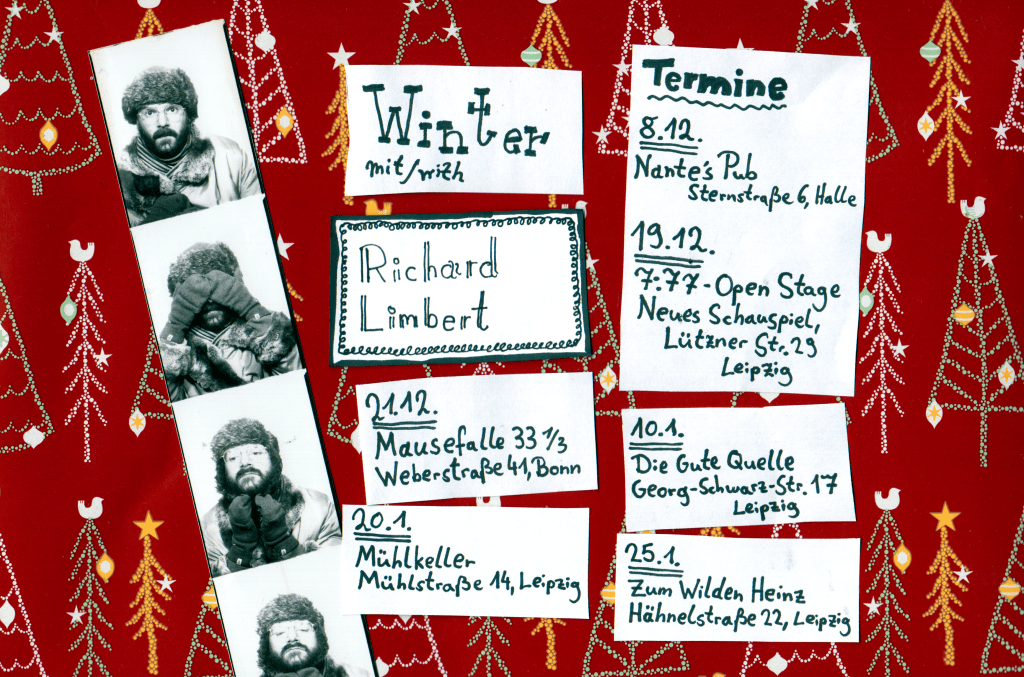 Winter
mit/with
Richard
Limbert
Termine
8.12.
Nante's Pub
Sternstraße 6, Halle
19.12.
7:77-Open Stage
Neues Schauspiel,
Lützner Str. 29
Leipzig
21.12.
Mausefalle 33 1/3
Weberstraße 41, Bonn
10.1.
Die Gute Quelle
Georg-Schwarz-Str. 17
Leipzig
20.1.
Mühlkeller
Mühlstraße 14, Leipzig
25.1.
Zum Wilden Heinz
Hähnelstraße 22, Leipzig